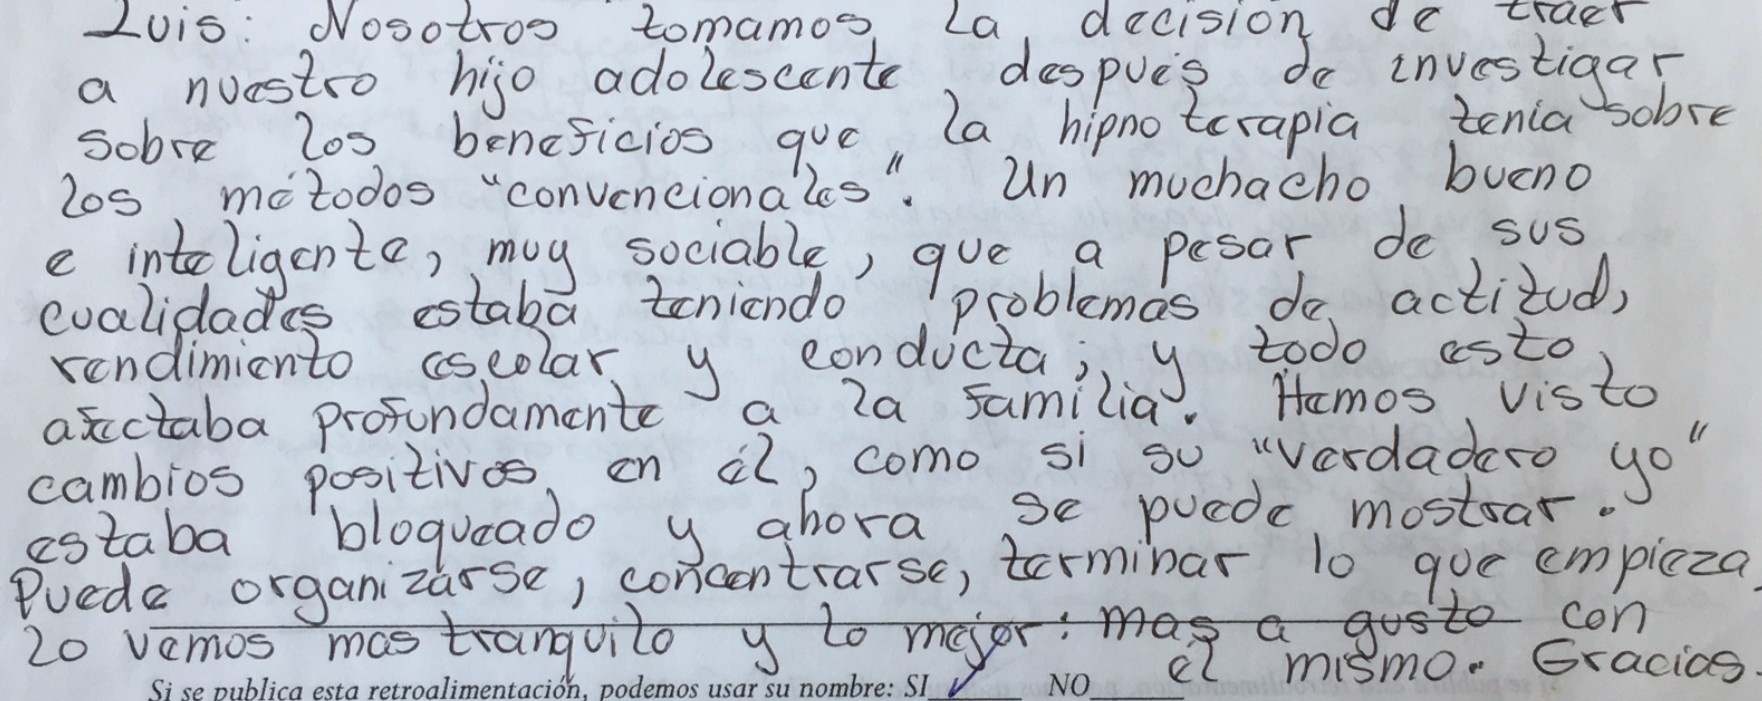 Luis: Nosotros tomamos la decisión de traer
a nuestro hijo adolescente después de investigar
sobre los beneficios que la hipnoterapia tenía sobre
los métodos "convencionales". Un muchacho bueno
e inteligente, muy sociable, que a pesar de sus
cualidades estaba teniendo problemas de actitud,
rendimiento escolar y conducta; y todo esto
afectaba profundamente a la familia. Hemos visto
cambios positivos en él, como si su "verdadero yo"
estaba bloqueado y ahora se puede mostrar.
Puede organizarse, concentrarse, terminar lo que empieza.
Lo vemos mas tranquilo y lo mejor: mas a gusto con
él mismo. Gracias.
Si se publica esta retroalimentación, podemos usar su nombre: SI ✓ NO